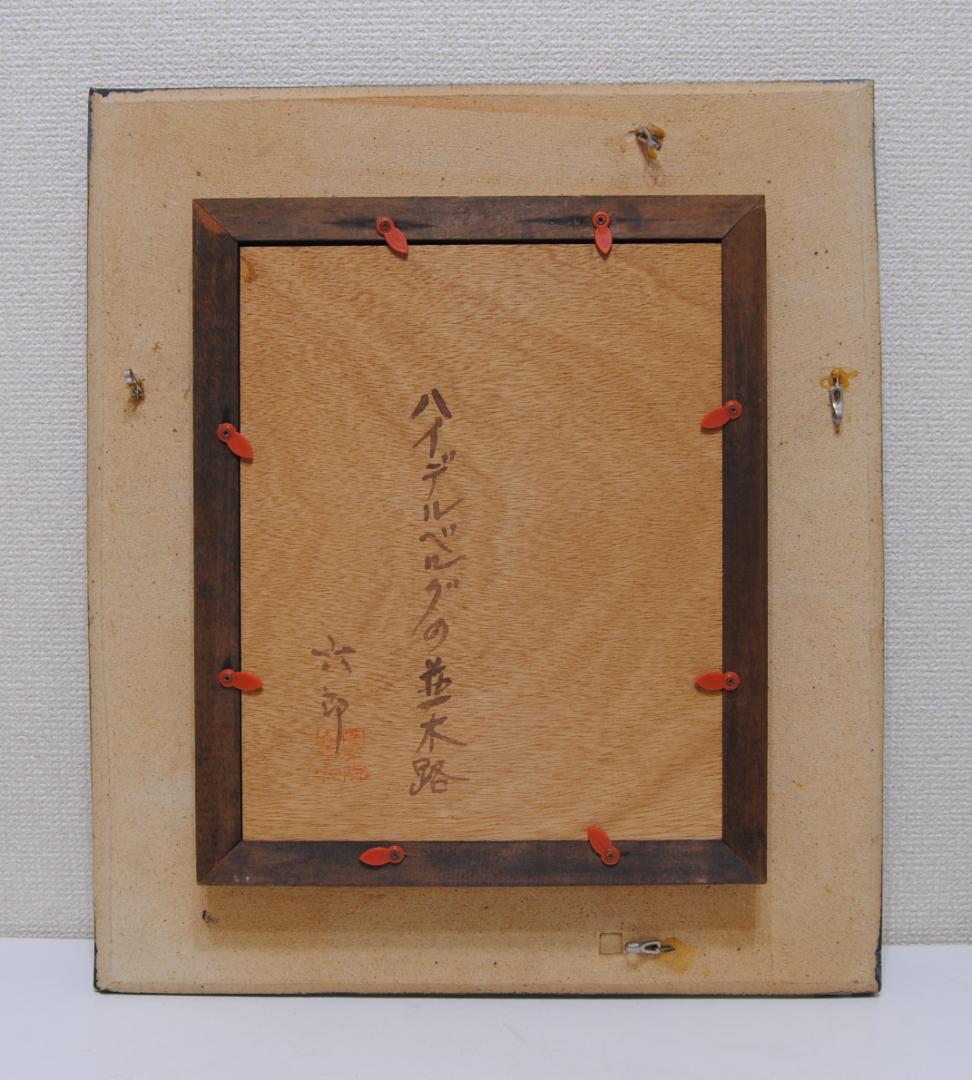 ハイデルベルグの並木路
六郎